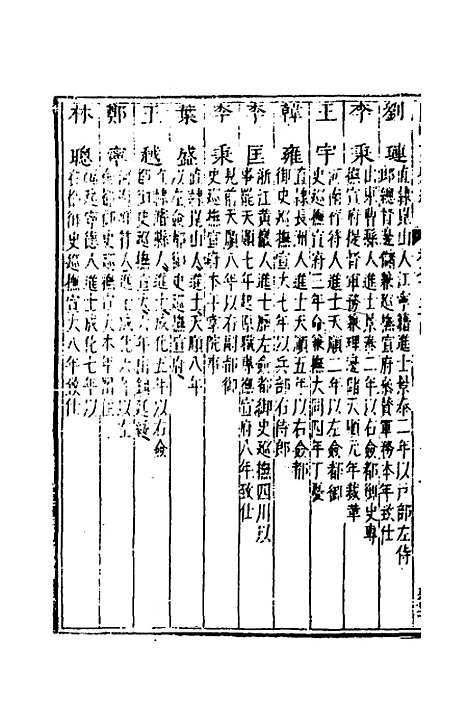 劉璉
直隷崑山人江寧籍進士景泰二年以戸部左侍
郎總督邊儲兼巡撫宣府叅賛軍務本年致仕
李秉
山東曹縣人進士景泰二年以右僉都御史專
撫宣府提督軍務兼理邊儲天順元年裁革
王宇
河南祥符人進士天順二年以左僉都御
史巡撫宣府二年命兼撫大同四年丁憂
韓雍
直隷長洲人進士天順五年以右僉都
御史巡撫宣大七年以兵部右侍郎
李匡
浙江黃巖人進士歷左僉都御史巡撫四川以
事罷天順七年起原職專撫宣府八年致仕
李秉
見前天順八年以右副都御
史巡撫宣府本年掌院事
葉盛
直隷崑山人進士天順八年
以左僉都御史巡撫宣府
王越
直隷濬縣人進士成化五年以右僉
都御史巡撫宣大六年
鄭寧
河南祥符人進士成化六年以左
僉都御史巡撫宣大本年
林聰
福建寧德人進士成化七年以
右都御史巡撫宣大八年致仕